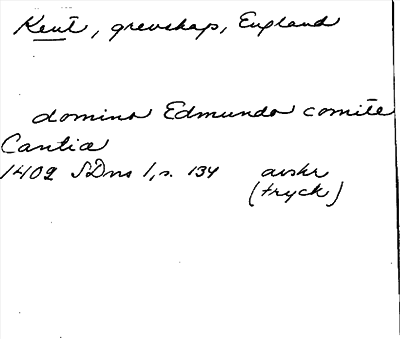 Kent, grevskap, England
domino Edmundo comite
Cantia
1402 SDns 1, s. 134 avskr
(tryck)